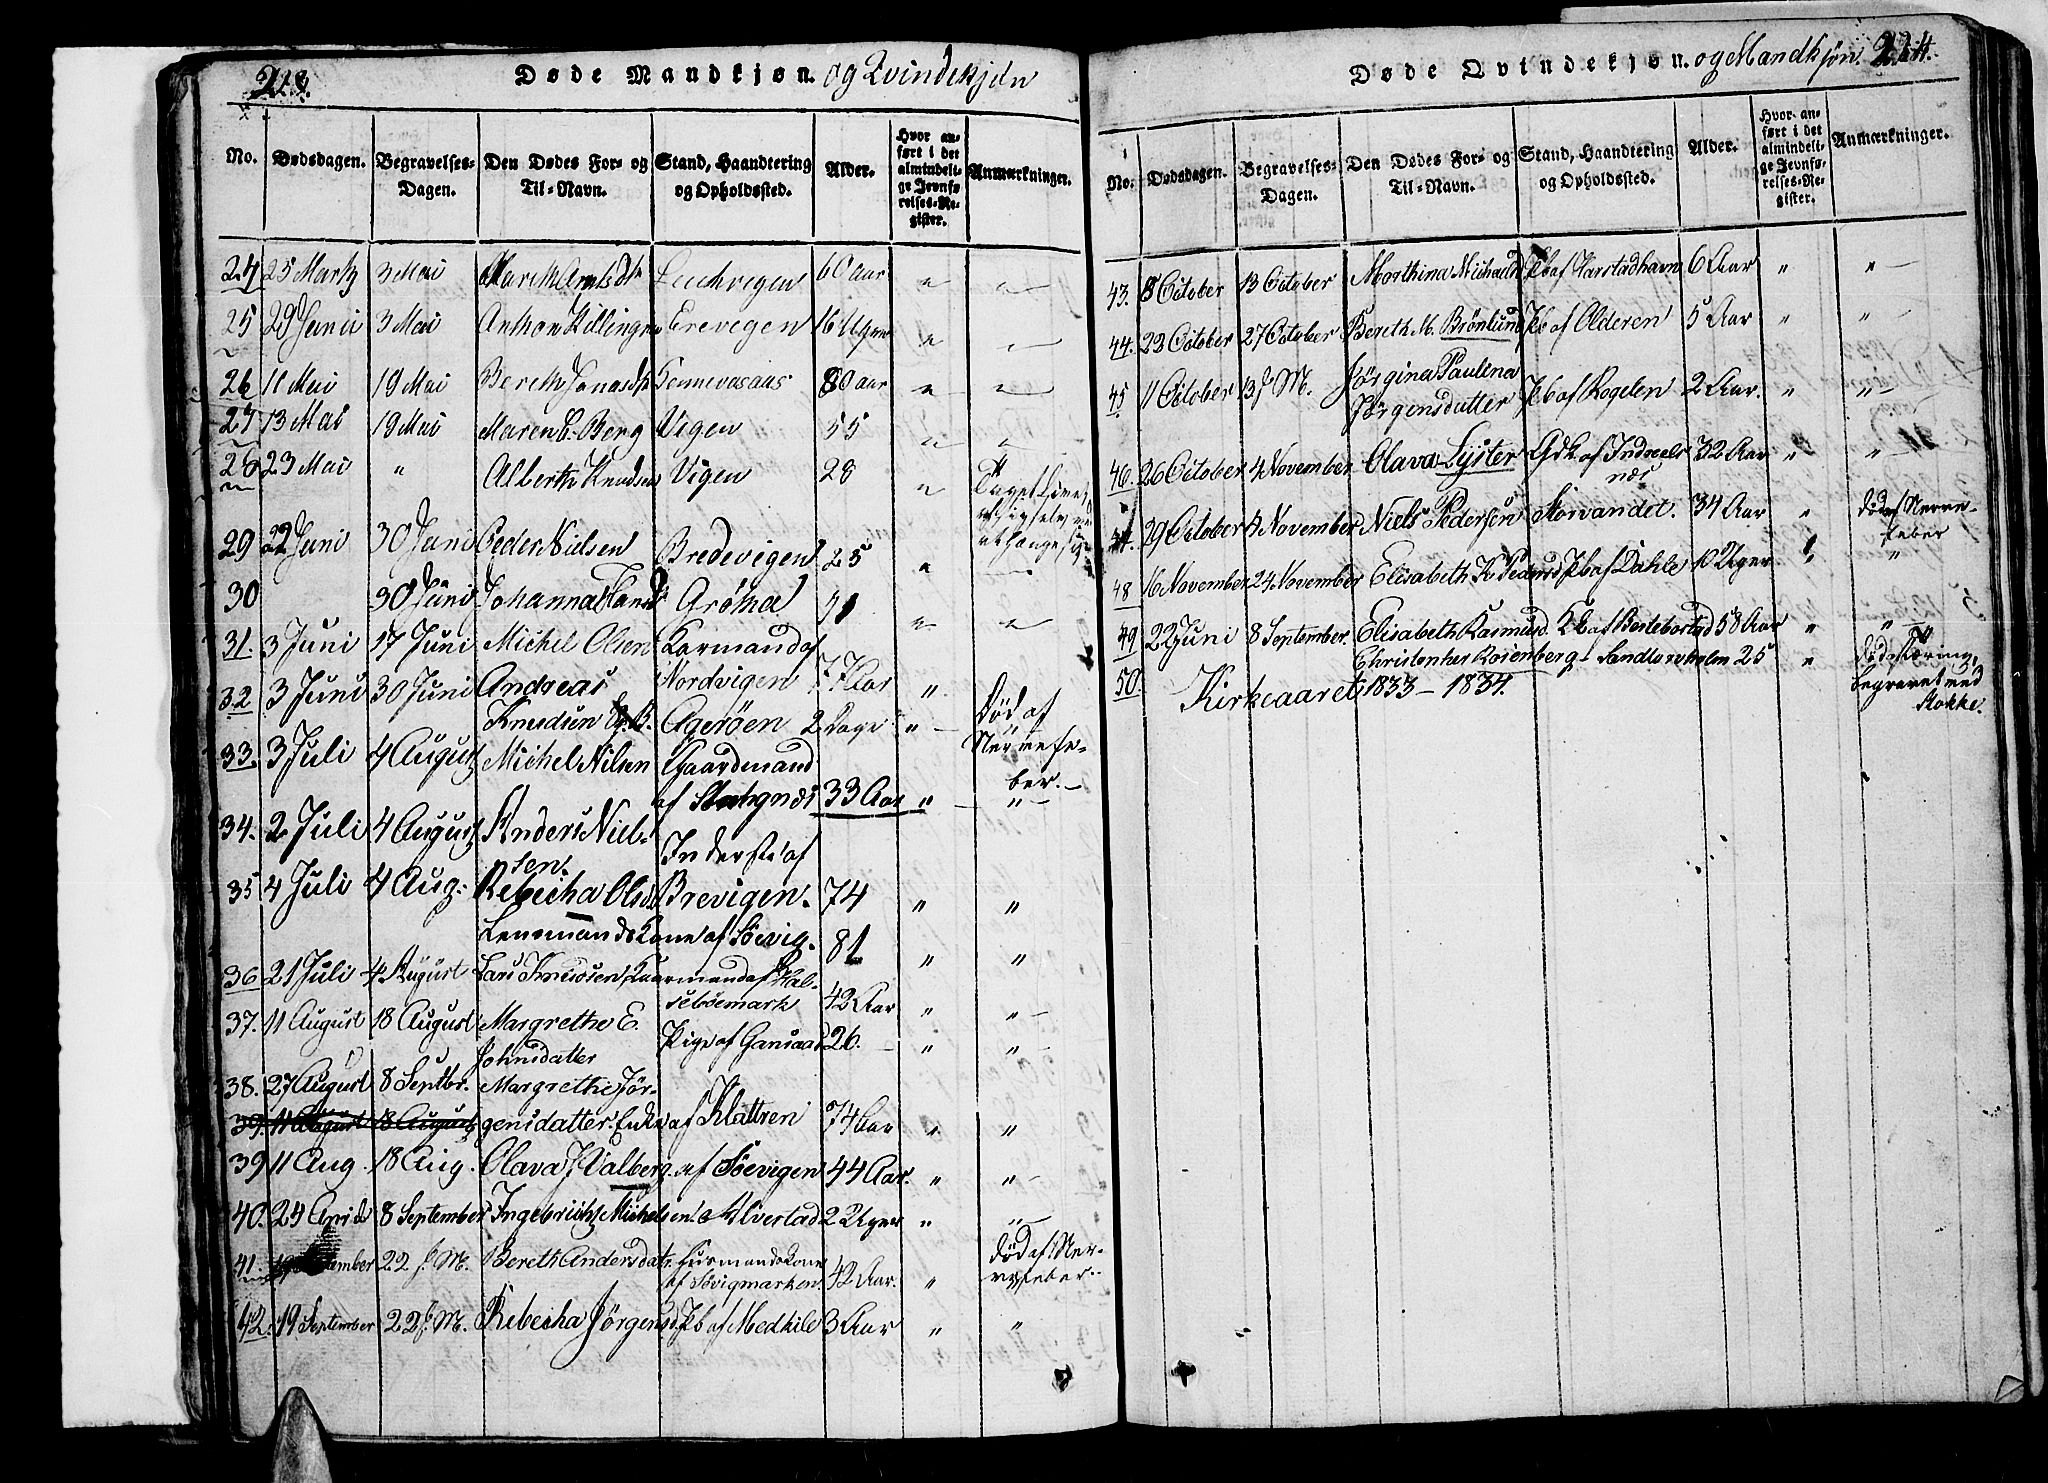 Døde Mandkjøn. og Qvindekjøn
No. Dødsdagen. Begravelses-Dagen. Den Dødes For- og Til-Navn. Stand, Haandtering og Opholdssted. Alder. Hvor anført i det almindelige Jevnførelses-Register. Anmærkninger.
24 25 Martz 3 Mai 60 aar " "
25 29 Junii 3 Mai Anthon Killingn Erevigen 16 Ugen " "
26 11 Mai 19 Mai Bereth Jonasdtr Sennevasaas 80 aar " "
27 13 Mai 19 Mai Maren C. Berg Vigen 55 " "
28 23 Mai " Alberth Knudsen Vigen 28 "
29 22 Juni 30 Juni Peder Nielsen Bredevigen 25 "
30 30 Juni Johanna Grøna 91 " "
31. 3 Juni 17 Juni Michel Olsen Kaarmand af
Nordvigen 77 Aar "
32 3 Juni 30 Juni Andreas
Knudsen Agerøen 2 Dage " Død af
33. 3 Juli 4 August Michel Nilsen Gaardmand Nervefe-
af 33 Aar " ber. -
34. 2 Juli 4 August Anders Niel- "
sen. Inderste af
35 4 Juli 4 Aug. Rebecha Olsd Brevigen. 74 " "
Lensmands Kone af Søevig. 81 " "
36 21 Juli 4 August Lars Knudsen Kaarmand af Hal-
sebøemark 42 Aar " "
37. 11 August 18 August Margrethe E. Pige af Gansaas 26. " "
Johnsdatter
38. 27 August 8 Septbr. Margrethe Jør-
39. 11 August 18 August gensdatter. Enke af Klattren 74 Aar " "
39 11 Aug. 18 Aug. Olava J Valberg. af Søevigen 44 Aar. " "
40. 24 April 8 September Ingebricht Michelsen. Alverstad 2 Uger " "
41. 22 s. M. Bereth Andersdatr. Huusmandskone Død af Ner-
af Søvigmarken. 42 Aar. " vefeber.
42. 19 September 22 s. M. Rebecha Jørgensd Pb af Medkile 3 Aar " "
Døde Qvindekjøn. og Mandkjøn. 224.
No. Dødsdagen. Begravelses-Dagen. Den Dødes For- og Til-Navn. Stand, Haandtering og Opholdssted. Alder. Hvor anført i det almindelige Jevnførelses-Register. Anmærkninger.
43. 8 October 13 October Morthina Michaelsd Pb af Harstadhavn 6 Aar " "
44. 23 October 27 October Bereth M. Brønlund Pb af Olderen 5 Aar " "
45 11 October 13 s M. Jørgina Paulina
Jørgensdatter Pb af Rogelen 2 Aar. " "
46. 26 October 4 November Olava Lyster Gdk af Indreals
næs 32 Aar " "
47. 29 October 4 November Niels Pedersen Storvandet. 34 Aar " død af Nerve-
feber
48 16 November 24 November Elisabeth K Pedersd Pb af Dahle 10 Uger " "
49 22 Juni 8 September. Elisabeth Rasmusd. Kb af Berlebostad 58 Aar " "
50. Christopher Rosenberg - Sandtorvholm 25 " død af Tæring,
Kirkeaaret 1833 - 1834. begravet ved
Stokke.